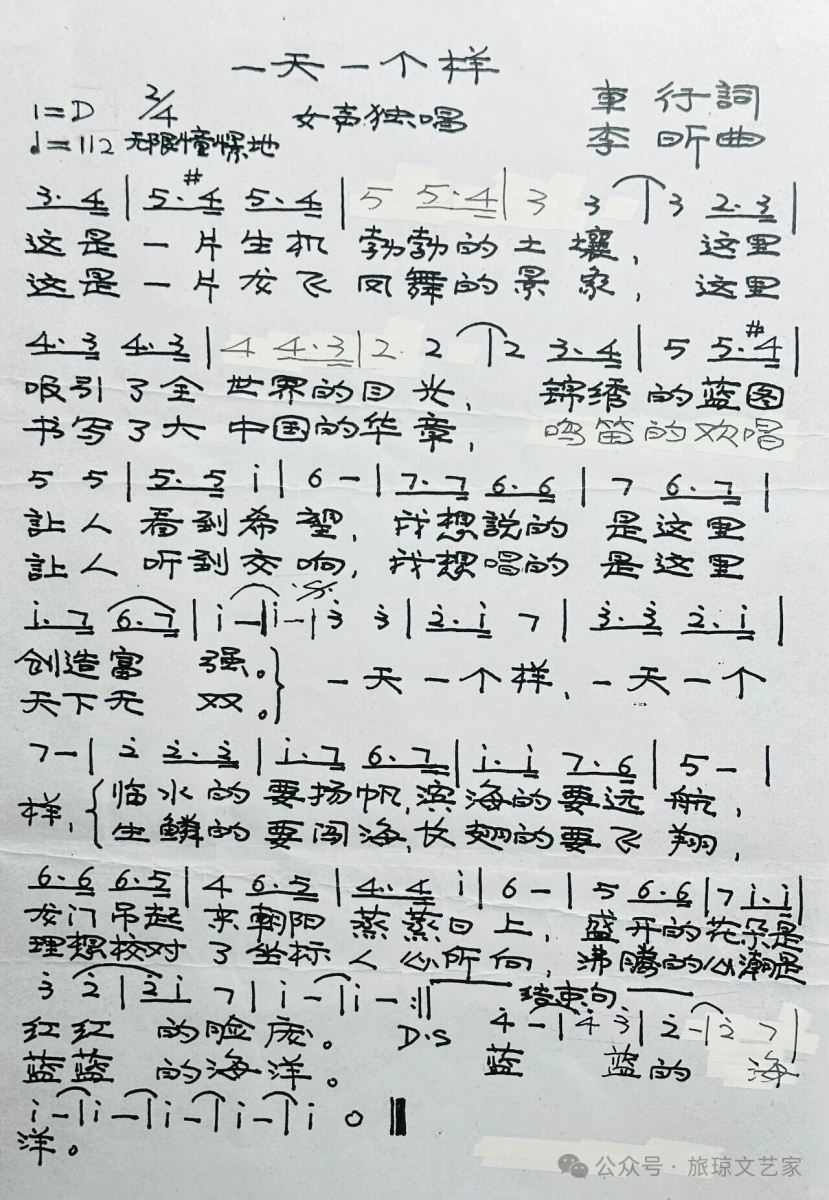 一天一个样
1=D 2/4 女声独唱 車行詞
♩=112 无限憧憬地 李昕曲
3·4 | 5·#4 5·4 | 5 5·4 | 3 3 | 3 2·3 |
这是一片生机勃勃的土壤，这里
这是一片龙飞凤舞的景象，这里
4·3 4·3 | 4 4·3 | 2· 2 | 2 3·4 | 5 5·#4
吸引了全世界的目光，锦绣的蓝图
书写了大中国的华章，鸣笛的欢唱
5 5 | 5·5 i | 6 - | 7·7 6·6 | 7 6·7 |
讓人看到希望，我想説的是这里
讓人听到交响，我想唱的是这里
i·7 6·7 | i - | i - | 3̇ 3̇ | 2̇·i 7 | 3̇·3̇ 2̇·i |
创造富强。一天一个样，一天一个
天下无双。
7 - | 2̇ 2̇·3̇ | i·7 6·7 | i·i 7·6 | 5 - |
样，临水的要扬帆，滨海的要远航，
生鳞的要闯海，长翅的要飞翔，
6·6 6·5 | 4 6·5 | 4·4 i | 6 - | 5 6·6 | 7 i·i |
龙门吊起来朝阳蒸蒸日上，盛开的花朵是
理想校对了坐标人心所向，沸腾的心潮是
3̇ 2̇ | 2̇i 7 | i - | i - :‖ 结束句
红红的脸庞。D.S 4̇ - | 4̇ 3̇ | 2̇ - | 2̇ 7 |
蓝蓝的海洋。蓝蓝的海
i - | i - | i - | i - | i 0 ‖
洋。
公众号·旅琼文艺家